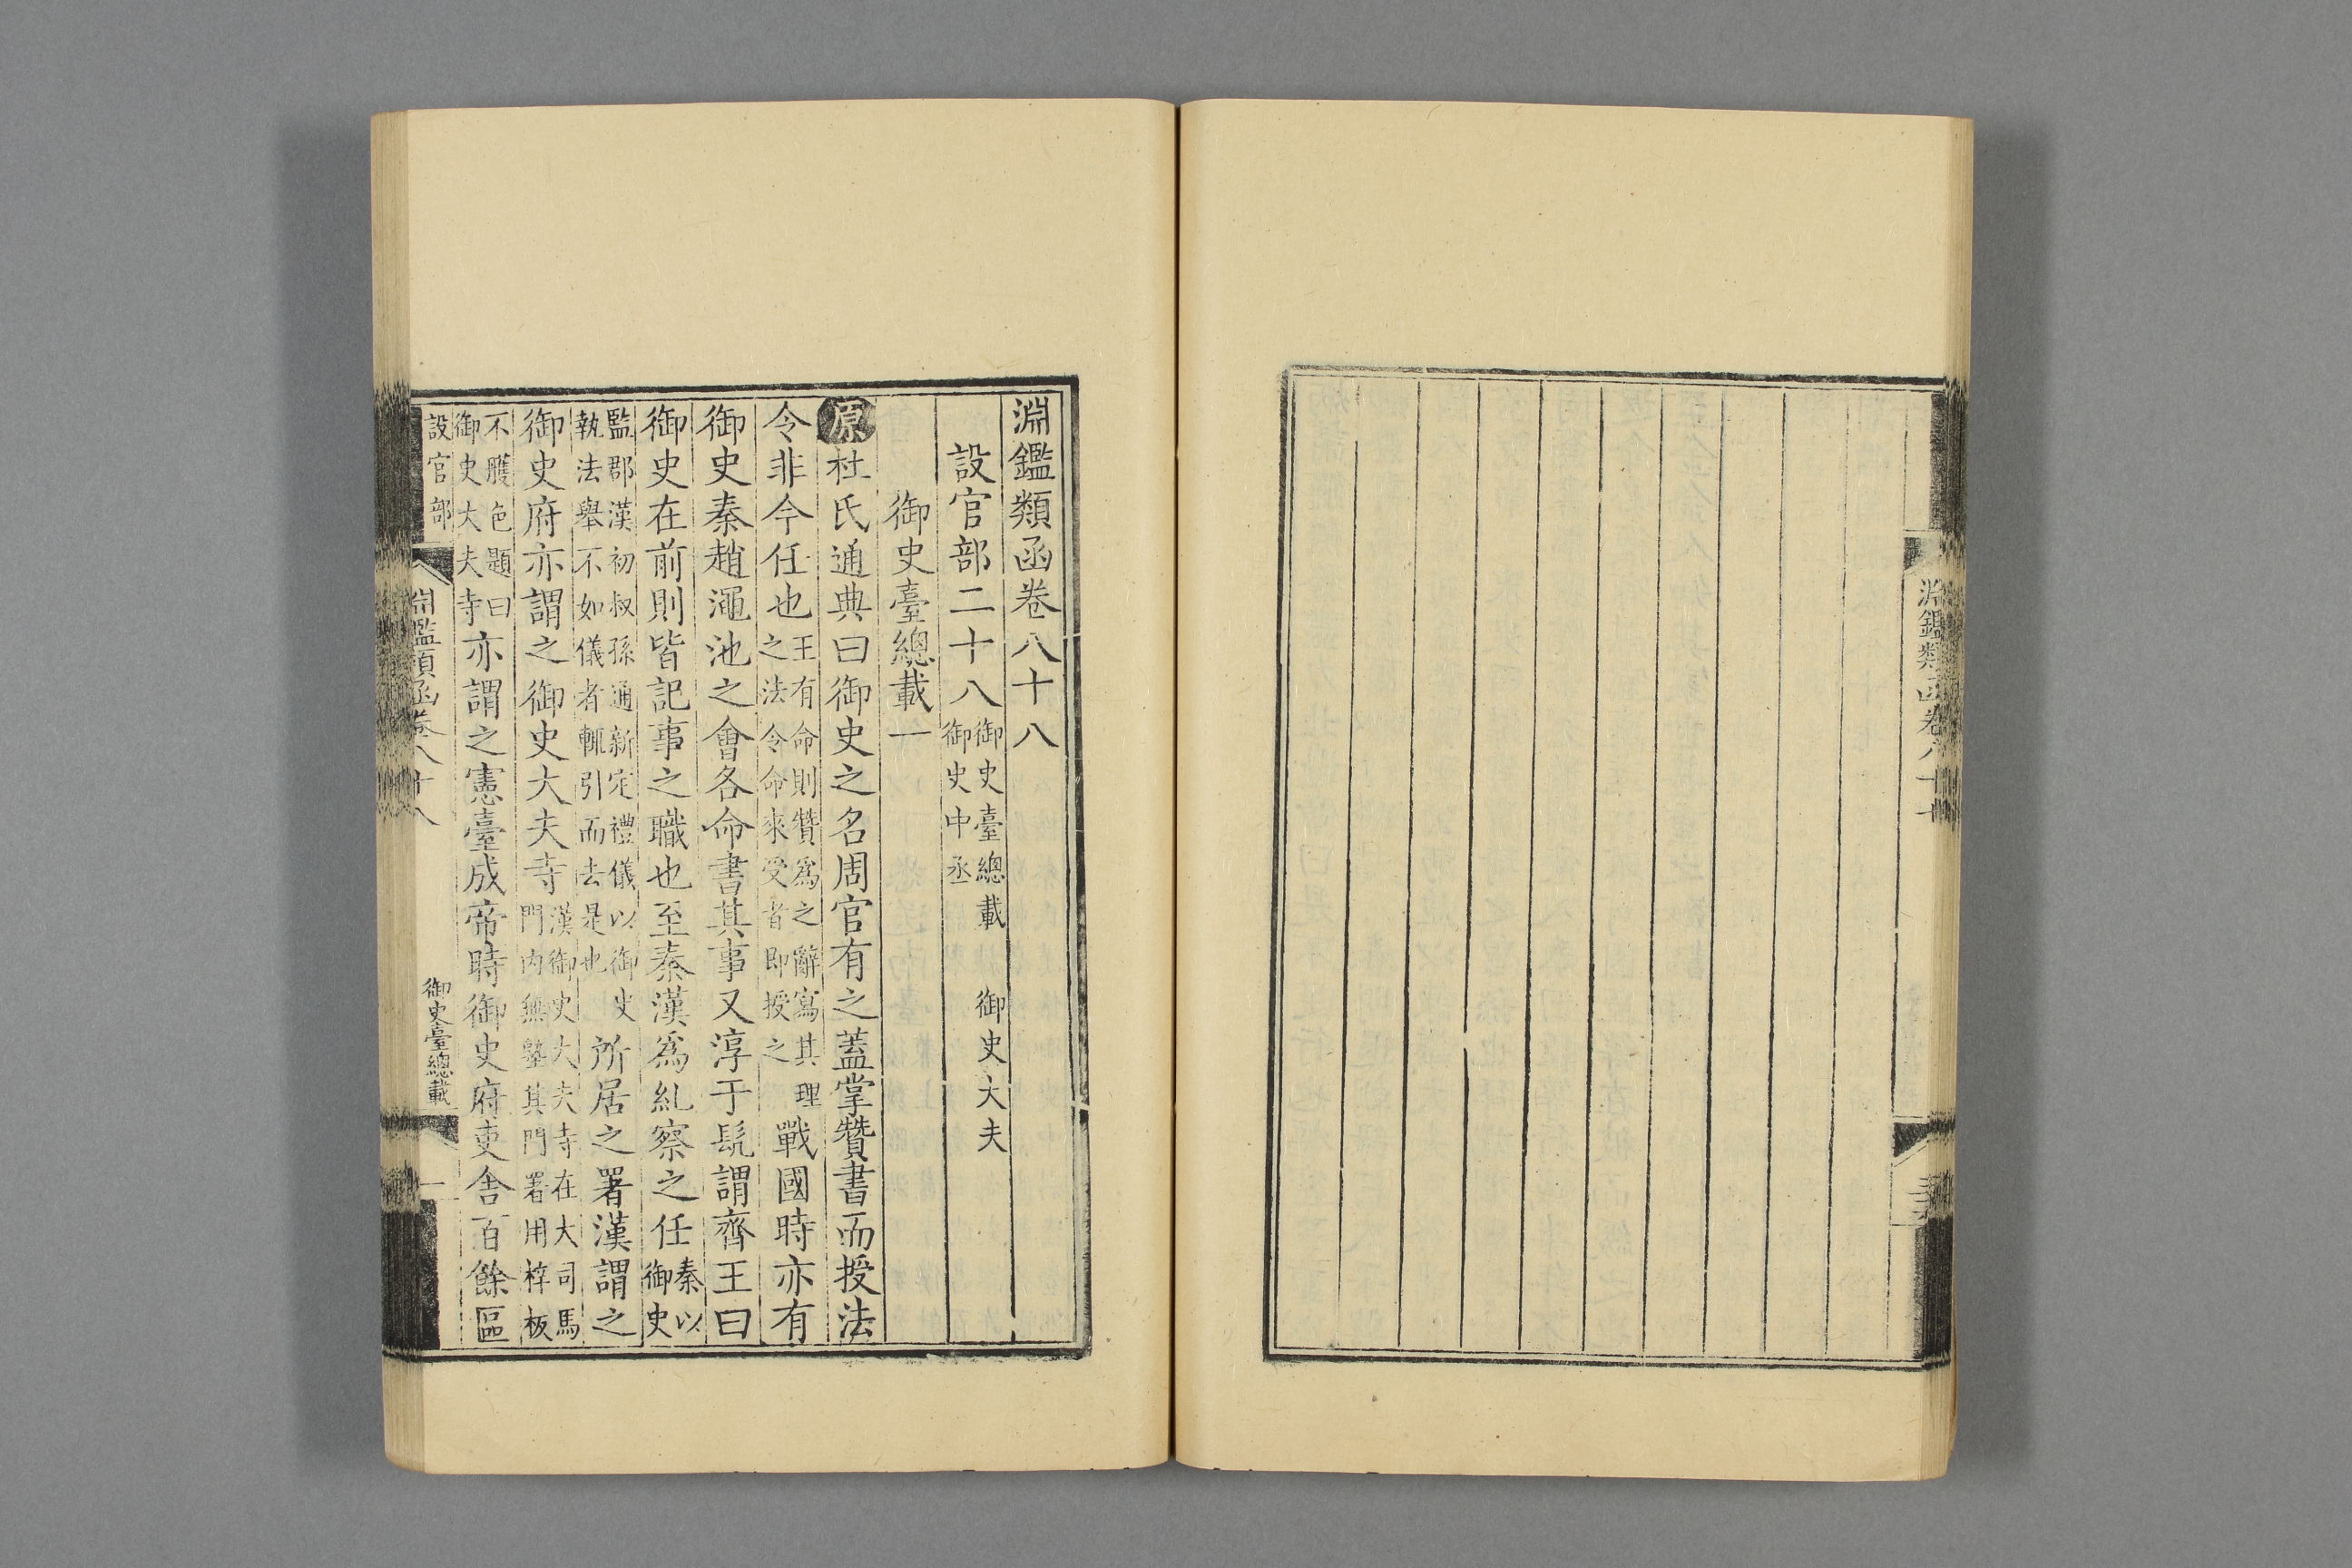 淵鑑類函卷八十七
淵鑑類函卷八十八
設官部二十八御史臺總載 御史大夫
御史中丞
御史臺總載一
原杜氏通典曰御史之名周官有之蓋掌贊書而授法
令非今任也王有命則贊爲之辭寫其理
之法令命來受者即授之
戰國時亦有
御史秦趙澠池之會各命書其事又淳于髡謂齊王曰
御史在前則皆記事之職也至秦漢爲糺察之任秦以
御史
監郡漢初叔孫通新定禮儀以御史
執法舉不如儀者輒引而去是也
所居之署漢謂之
御史府亦謂之御史大夫寺漢御史大夫寺在大司馬
門內無塾其門署用梓板
不雘色題曰
御史大夫寺
亦謂之憲臺成帝時御史府吏舍百餘區
設官部
淵鑑類函卷八十八
御史臺總載
一